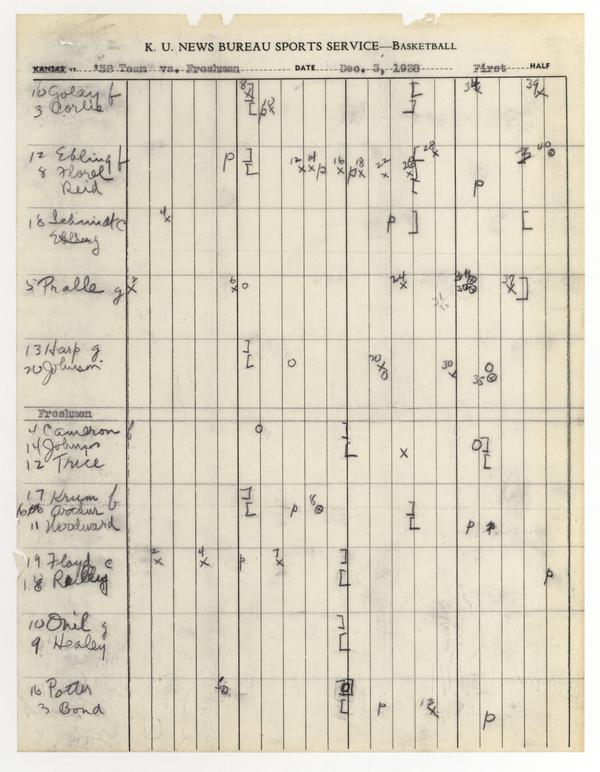 K. U. NEWS BUREAU SPORTS SERVICE—BASKETBALL
KANSAS vs. '38 Team vs. Freshmen DATE Dec. 3, 1938 First HALF
10 Golay f 8 34 39
3 Corlis p
12 Ebling f p 12 14 p 16 p 18 22 28 40
8 Florel
Reid p
18 Schmidt c 4 p
Ebling
5 Pralle g 2 6 24 37
13 Harp g
20 Johnson 20 30 35
Freshmen
4 Cameron f
14 Johnson
12 Trice
17 Krum f
Arthur p 8
11 Woodward p p
19 Floyd c 2 4 p 7
18 Reilley p
10 Onil g
9 Healey
16 Potter
3 Bond p 12 p